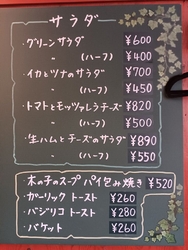 サラダ
・グリーンサラダ ¥600
〃 (ハーフ) ¥400
・イカとツナのサラダ ¥700
〃 (ハーフ) ¥450
・トマトとモッツァレラチーズ ¥820
〃 (ハーフ) ¥500
・生ハムとチーズのサラダ ¥890
〃 (ハーフ) ¥550
木の子のスープ パイ包み焼き ¥520
・ガーリック トースト ¥260
・バジリコ トースト ¥280
・バケット ¥260